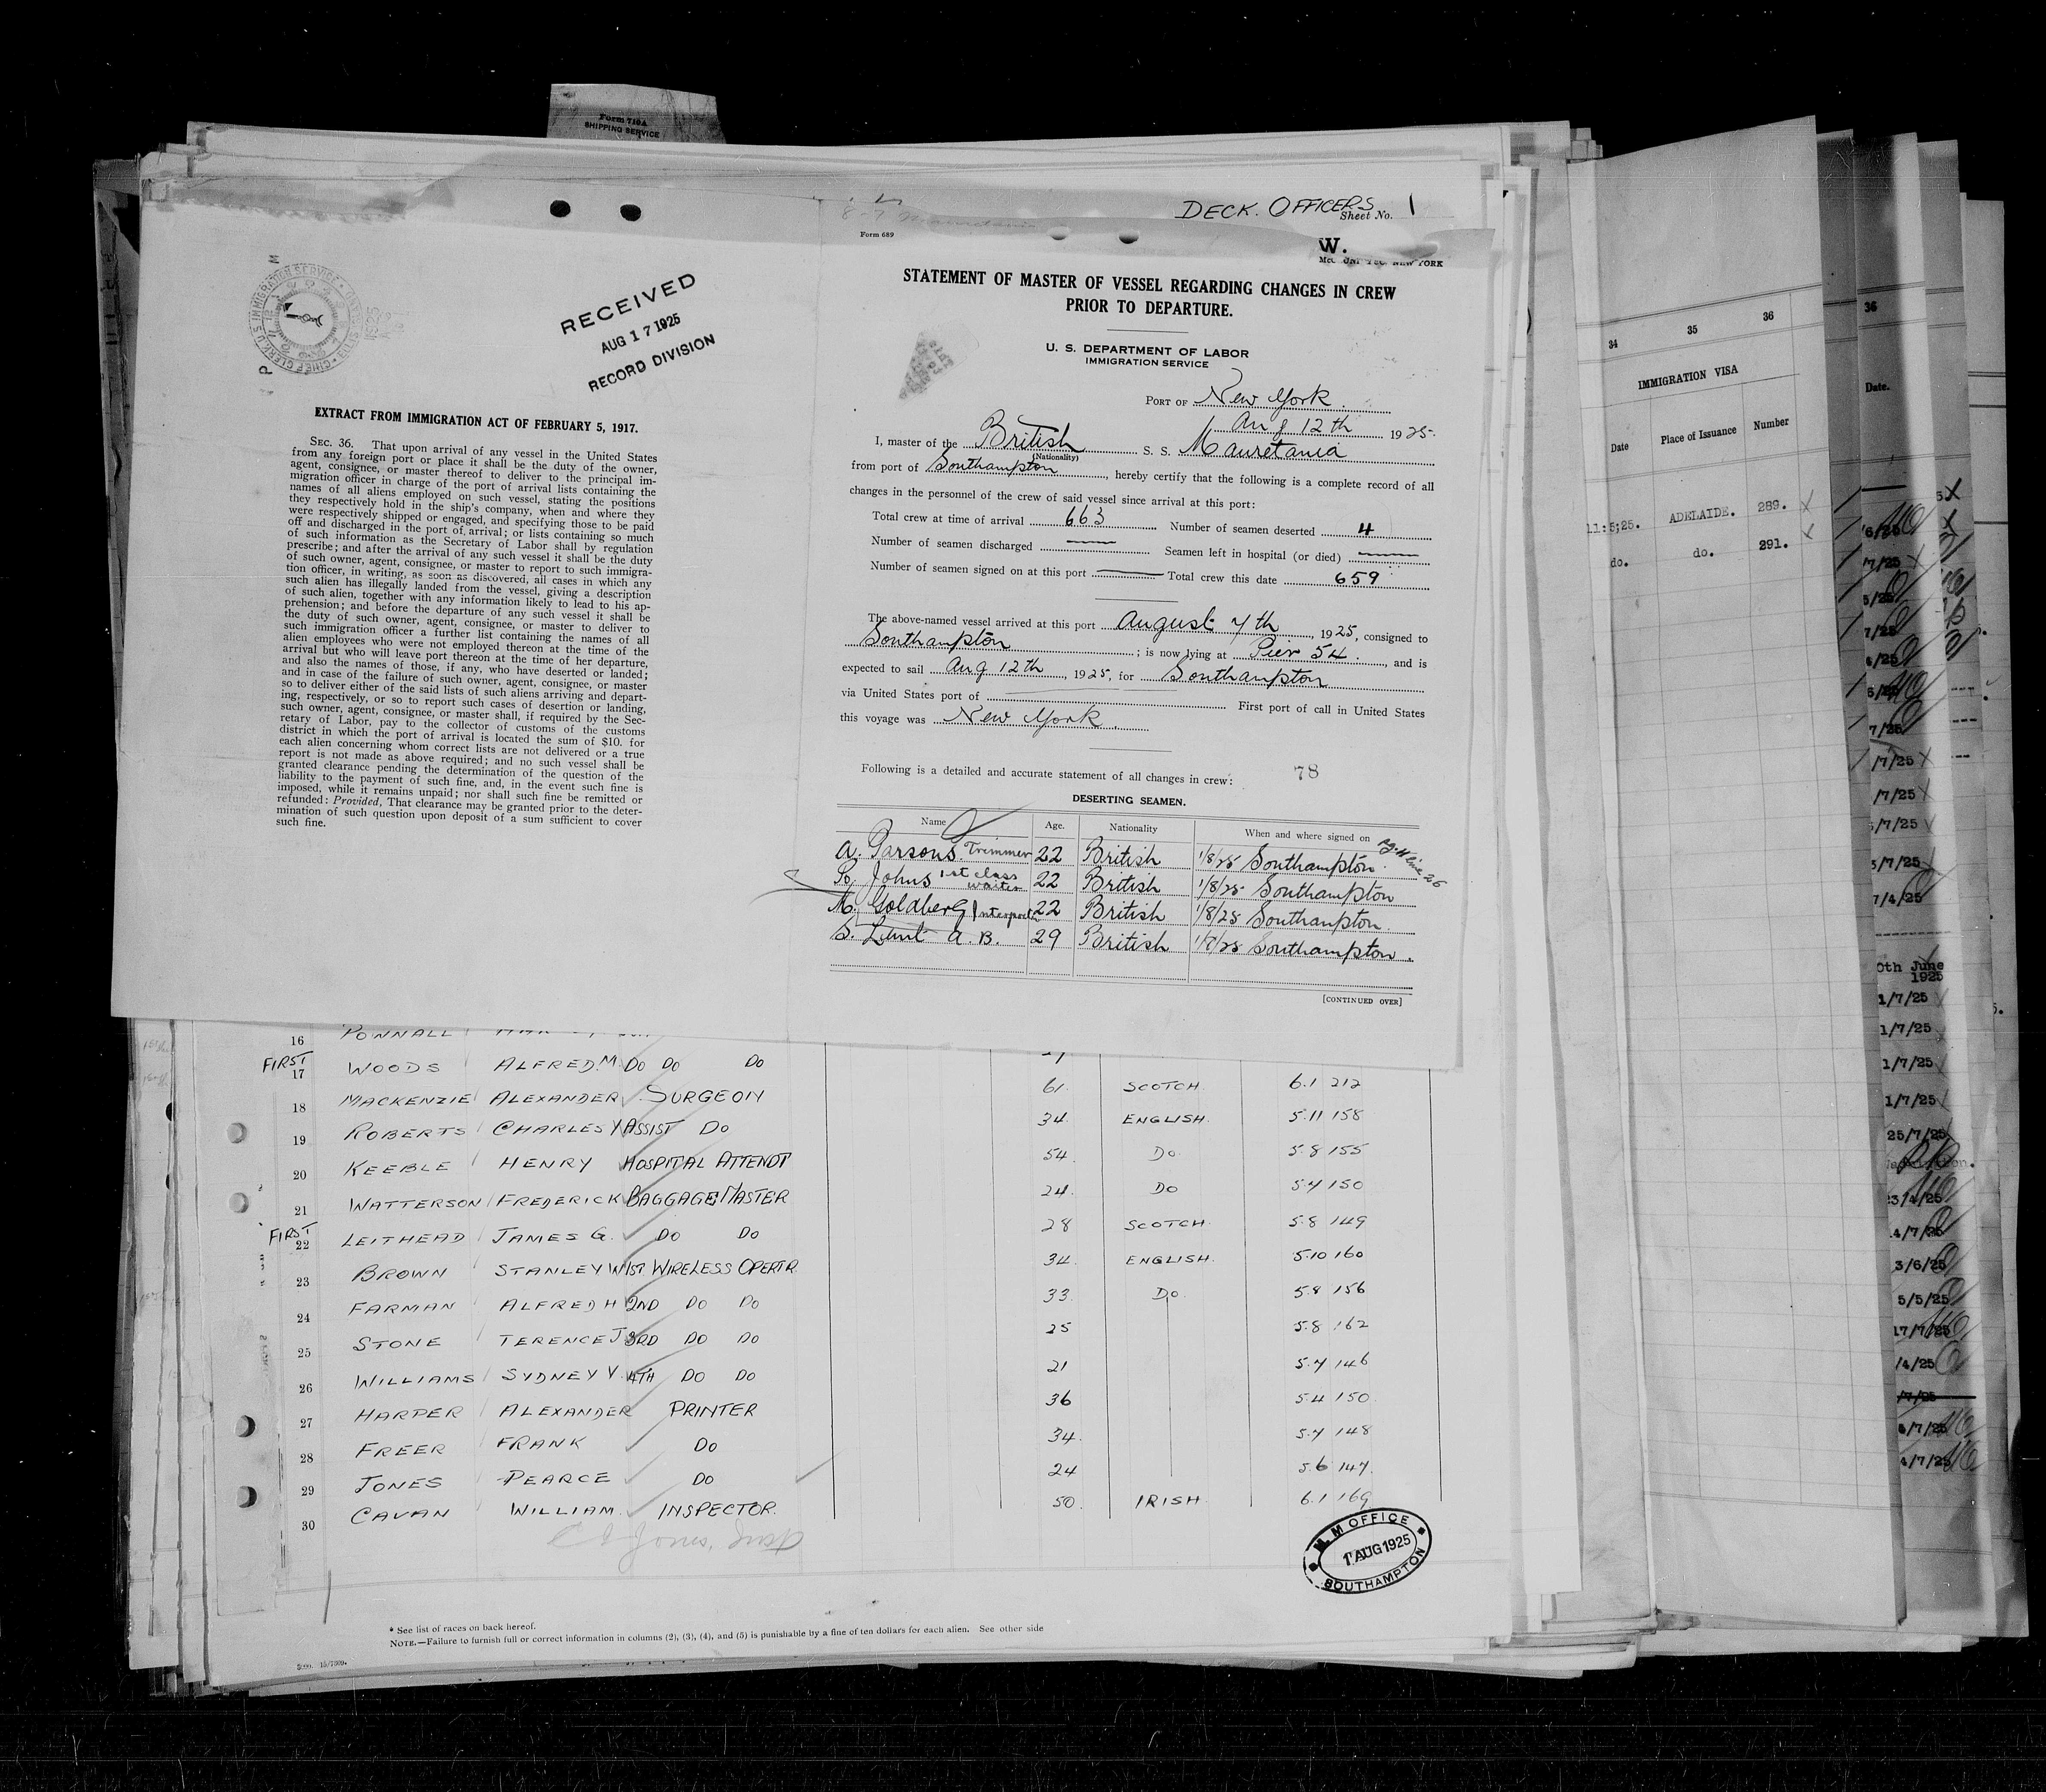 Form 710A
SHIPPING SERVICE
DECK. OFFICERS
Sheet No. 1
Form 689
W.
NEW YORK
RECEIVED
AUG 17 1925
RECORD DIVISION
EXTRACT FROM IMMIGRATION ACT OF FEBRUARY 5, 1917.
SEC. 36. That upon arrival of any vessel in the United States
from any foreign port or place it shall be the duty of the owner,
agent, consignee, or master thereof to deliver to the principal im-
migration officer in charge of the port of arrival lists containing the
names of all aliens employed on such vessel, stating the positions
they respectively hold in the ship's company, when and where they
were respectively shipped or engaged, and specifying those to be paid
off and discharged in the port of arrival; or lists containing so much
of such information as the Secretary of Labor shall by regulation
prescribe; and after the arrival of any such vessel it shall be the duty
of such owner, agent, consignee, or master to report to such immigra-
tion officer, in writing, as soon as discovered, all cases in which any
such alien has illegally landed from the vessel, giving a description
of such alien, together with any information likely to lead to his ap-
prehension; and before the departure of any such vessel it shall be
the duty of such owner, agent, consignee, or master to deliver to
such immigration officer a further list containing the names of all
alien employees who were not employed thereon at the time of the
arrival but who will leave port thereon at the time of her departure,
and also the names of those, if any, who have deserted or landed;
and in case of the failure of such owner, agent, consignee, or master
so to deliver either of the said lists of such aliens arriving and depart-
ing, respectively, or so to report such cases of desertion or landing,
such owner, agent, consignee, or master shall, if required by the Sec-
retary of Labor, pay to the collector of customs of the customs
district in which the port of arrival is located the sum of $10. for
each alien concerning whom correct lists are not delivered or a true
report is not made as above required; and no such vessel shall be
granted clearance pending the determination of the question of the
liability to the payment of such fine, and, in the event such fine is
imposed, while it remains unpaid; nor shall such fine be remitted or
refunded: Provided, That clearance may be granted prior to the deter-
mination of such question upon deposit of a sum sufficient to cover
such fine.
STATEMENT OF MASTER OF VESSEL REGARDING CHANGES IN CREW
PRIOR TO DEPARTURE.
U. S. DEPARTMENT OF LABOR
IMMIGRATION SERVICE
PORT OF New York.
Aug 12th 1925.
I, master of the British S. S. Mauretania
(Nationality)
from port of Southampton, hereby certify that the following is a complete record of all
changes in the personnel of the crew of said vessel since arrival at this port:
Total crew at time of arrival 663 Number of seamen deserted 4
Number of seamen discharged — Seamen left in hospital (or died) —
Number of seamen signed on at this port — Total crew this date 659
The above-named vessel arrived at this port August 7th, 1925, consigned to
Southampton; is now lying at Pier 54., and is
expected to sail Aug 12th, 1925, for Southampton
via United States port of — First port of call in United States
this voyage was New York.
Following is a detailed and accurate statement of all changes in crew: 78
DESERTING SEAMEN.
Name Age. Nationality When and where signed on
A. Parsons. Trimmer 22 British 1/8/25 Southampton.
Johns 1st class waiter 22 British 1/8/25 Southampton
M. Goldberg 22 British 1/8/25 Southampton.
S. Lunt A. B. 29 British 1/8/25 Southampton.
[CONTINUED OVER]
16 POWNALL
FIRST 17 WOODS ALFRED.M. DO DO DO
18 MACKENZIE ALEXANDER SURGEON 61. SCOTCH. 6.1 212
19 ROBERTS CHARLES Y ASSIST DO 34. ENGLISH. 5.11 158
20 KEEBLE HENRY HOSPITAL ATTENDT 54. DO. 5.8 155
21 WATTERSON FREDERICK BAGGAGE MASTER 24. DO 5.7 150
FIRST 22 LEITHEAD JAMES G. DO DO 28 SCOTCH. 5.8 149
23 BROWN STANLEY W 1ST WIRELESS OPERTR 34. ENGLISH. 5.10 160
24 FARMAN ALFRED H 2ND DO DO 33. DO. 5.8 156
25 STONE TERENCE J 3RD DO DO 25 5.8 162
26 WILLIAMS SYDNEY V. 4TH DO DO 21 5.7 146
27 HARPER ALEXANDER PRINTER 36 5.4 150.
28 FREER FRANK DO 34. 5.7 148
29 JONES PEARCE DO 24 5.6 147.
30 CAVAN WILLIAM. INSPECTOR. 50. IRISH. 6.1 169
M. M OFFICE
1 AUG 1925
SOUTHAMPTON
* See list of races on back hereof.
NOTE.—Failure to furnish full or correct information in columns (2), (3), (4), and (5) is punishable by a fine of ten dollars for each alien. See other side
34 35 36
IMMIGRATION VISA
Date Place of Issuance Number
11:5;25. ADELAIDE. 289. X
do. do. 291. X
36
Date.
0th June
1925
1/7/25
1/7/25
1/7/25
1/7/25
25/7/25
4/7/25
3/6/25
5/5/25
17/7/25
/4/25
/7/25
6/7/25
4/7/25